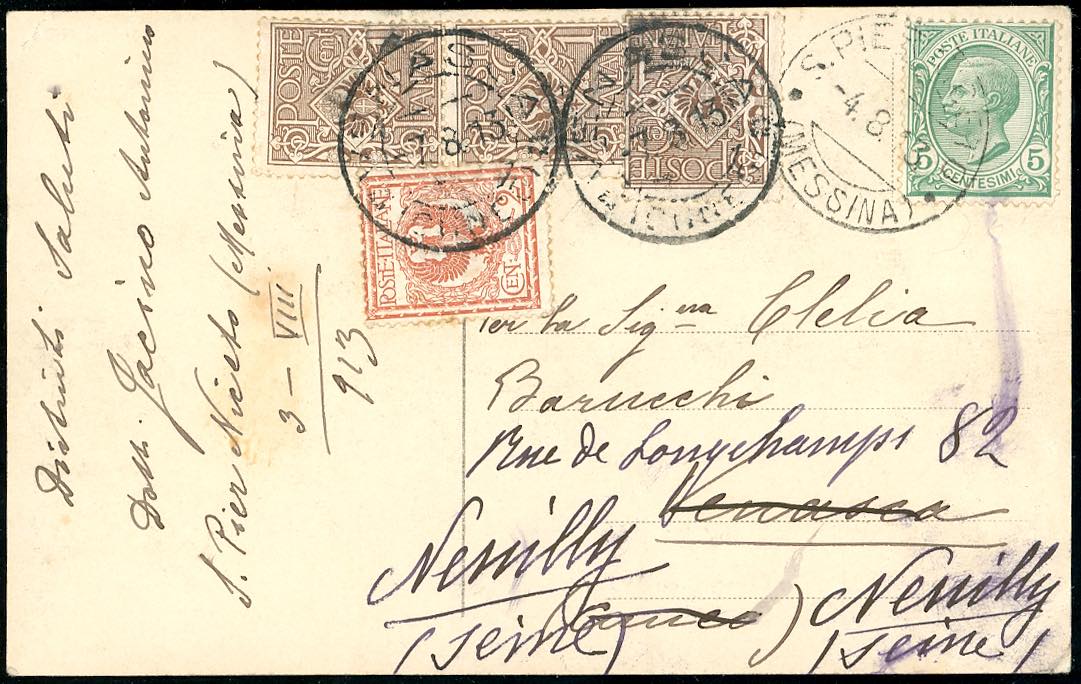 Distinti Saluti
Dott. Jacino Antonino
S. Pier Niceto (Messina)
3 – VIII
913
POSTE ITALIANE
5
5
CENTESIMI
POSTE
1
CEN
POSTE
1
POSTE
1
POSTE ITALIANE
2
CEN
8.13
13
S. PIE
-4.8.13
(MESSINA)
Per la Sigra Clelia
Barucchi
Rue de Longchamps 82
Venasca
Neuilly
(Seine)
(Cuneo)
Neuilly
(Seine)